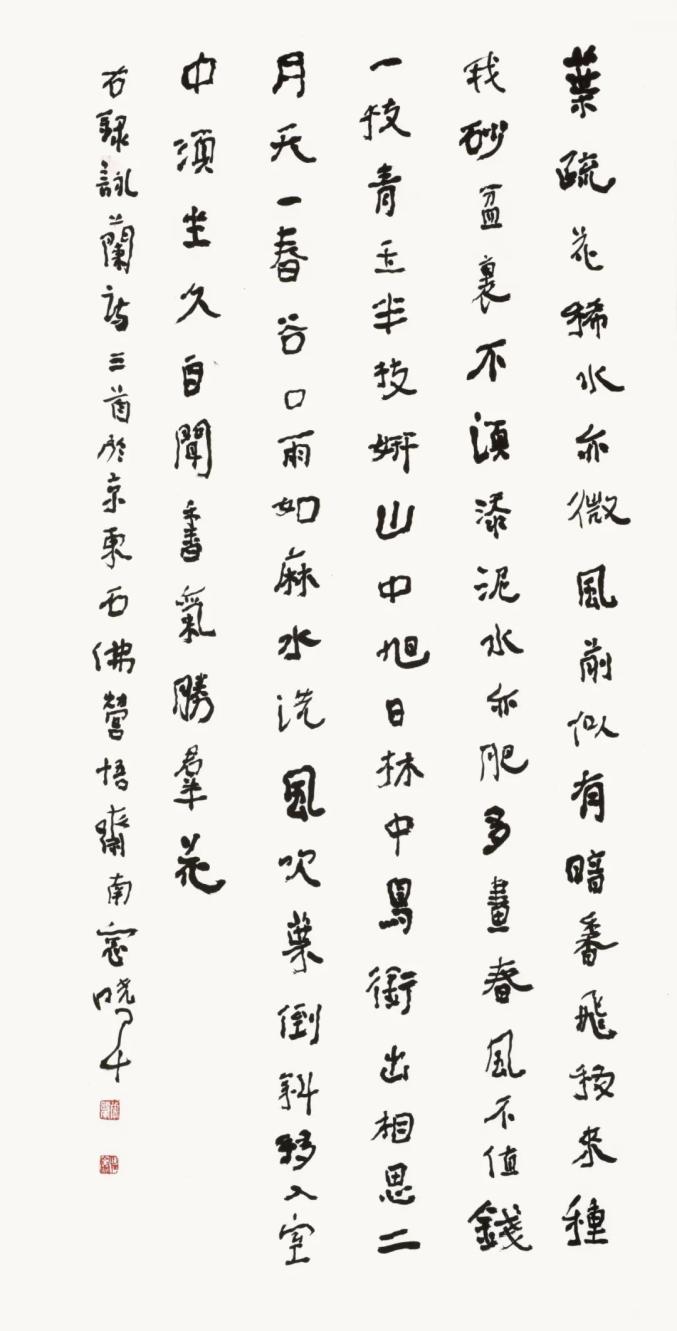 葉疏花稀水亦微風前似有暗香飛移來種
我砂盆裏不須添泥水亦肥多畫春風不值錢
一枝青玉半枝妍山中旭日林中鳥銜出相思二
月天一春谷口雨如麻水洗風吹葉倒斜移入室
中須坐久自聞香氣勝羣花
右録詠蘭詩三首於京東石佛營悟齋南窗曉